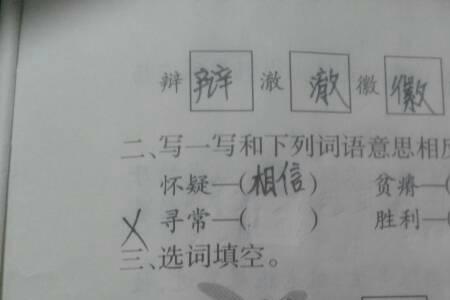 辩 辩 澈 澈 徽 徽
二、写一写和下列词语意思相反
怀疑—(相信) 贫瘠—(
寻常—( ) 胜利—(
三、选词填空。